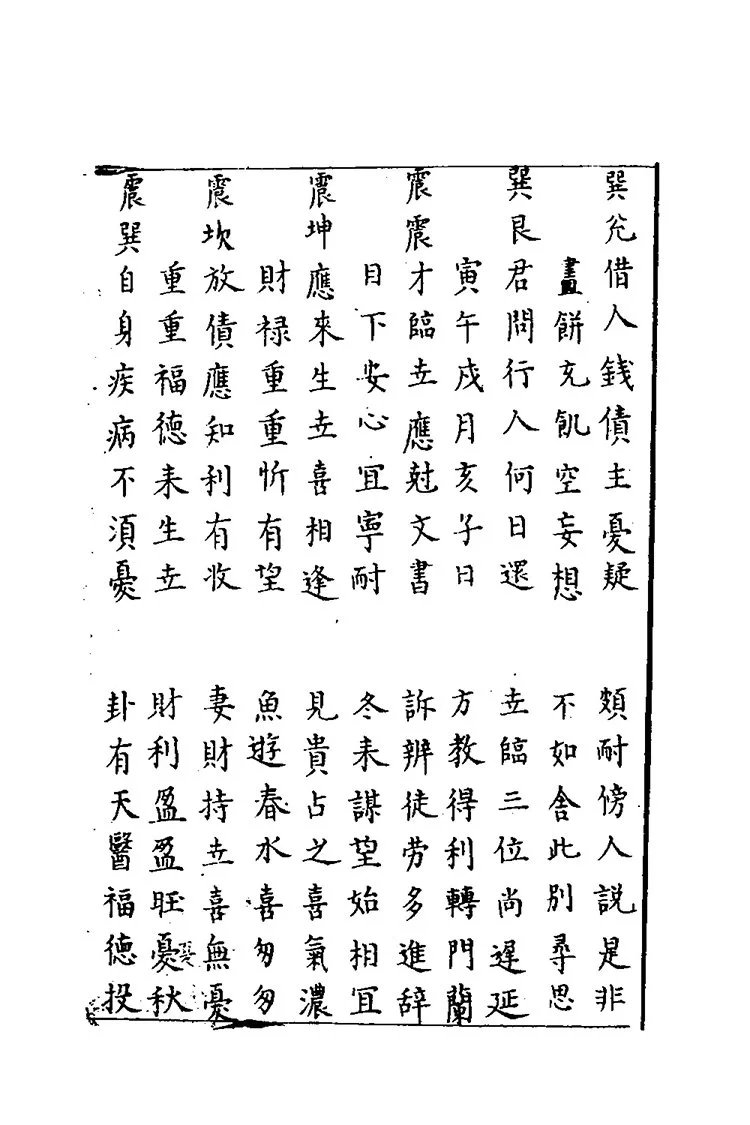 巽兊借人錢債主憂疑 頗耐傍人説是非
畫餅充飢空妄想 不如舍此別尋思
巽艮君問行人何日還 𠀍臨三位尚遲延
寅午戍月亥子日 方教得利轉門蘭
震震才臨𠀍應尅文書 訴辨徒劳多進辞
目下安心宜寧耐 冬来謀望始相宜
震坤應來生𠀍喜相逢 見貴占之喜氣濃
財禄重重忻有望 魚遊春水喜匆匆
震坎放債應知利有收 妻財持𠀍喜無憂
重重福德来生𠀍 財利盈盈旺憂秋
震巽自身疾病不須憂 卦有天醫福德投